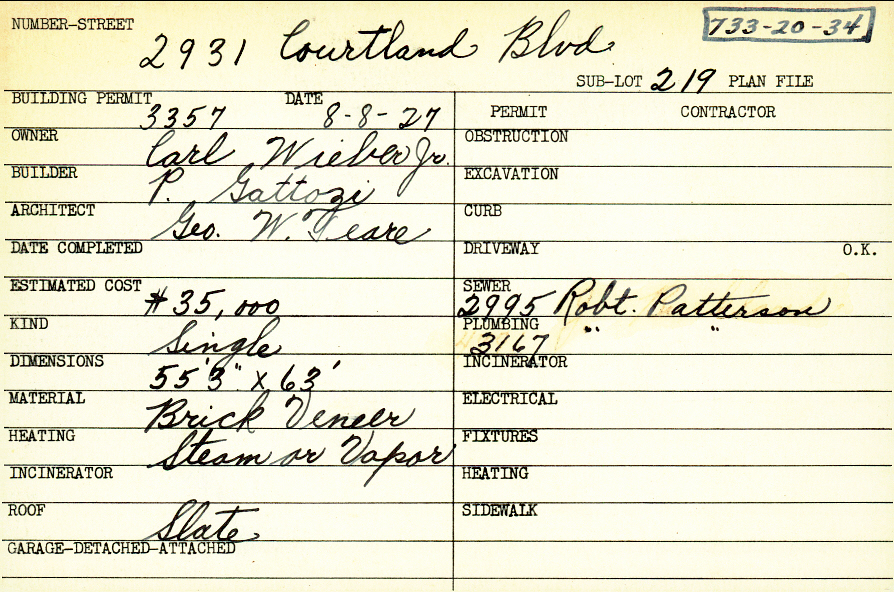 NUMBER-STREET 2931 Courtland Blvd. 733-20-34
SUB-LOT 219 PLAN FILE
BUILDING PERMIT 3357 DATE 8-8-27
OWNER Carl Wieber Jr.
BUILDER P. Gattozi
ARCHITECT Geo. W. Teare
DATE COMPLETED
ESTIMATED COST $35,000
KIND Single
DIMENSIONS 55'3" x 63'
MATERIAL Brick Veneer
HEATING Steam or Vapor
INCINERATOR
ROOF Slate
GARAGE-DETACHED-ATTACHED
PERMIT CONTRACTOR
OBSTRUCTION
EXCAVATION
CURB
DRIVEWAY O.K.
SEWER 2995 Robt. Patterson
PLUMBING 3167 " "
INCINERATOR
ELECTRICAL
FIXTURES
HEATING
SIDEWALK